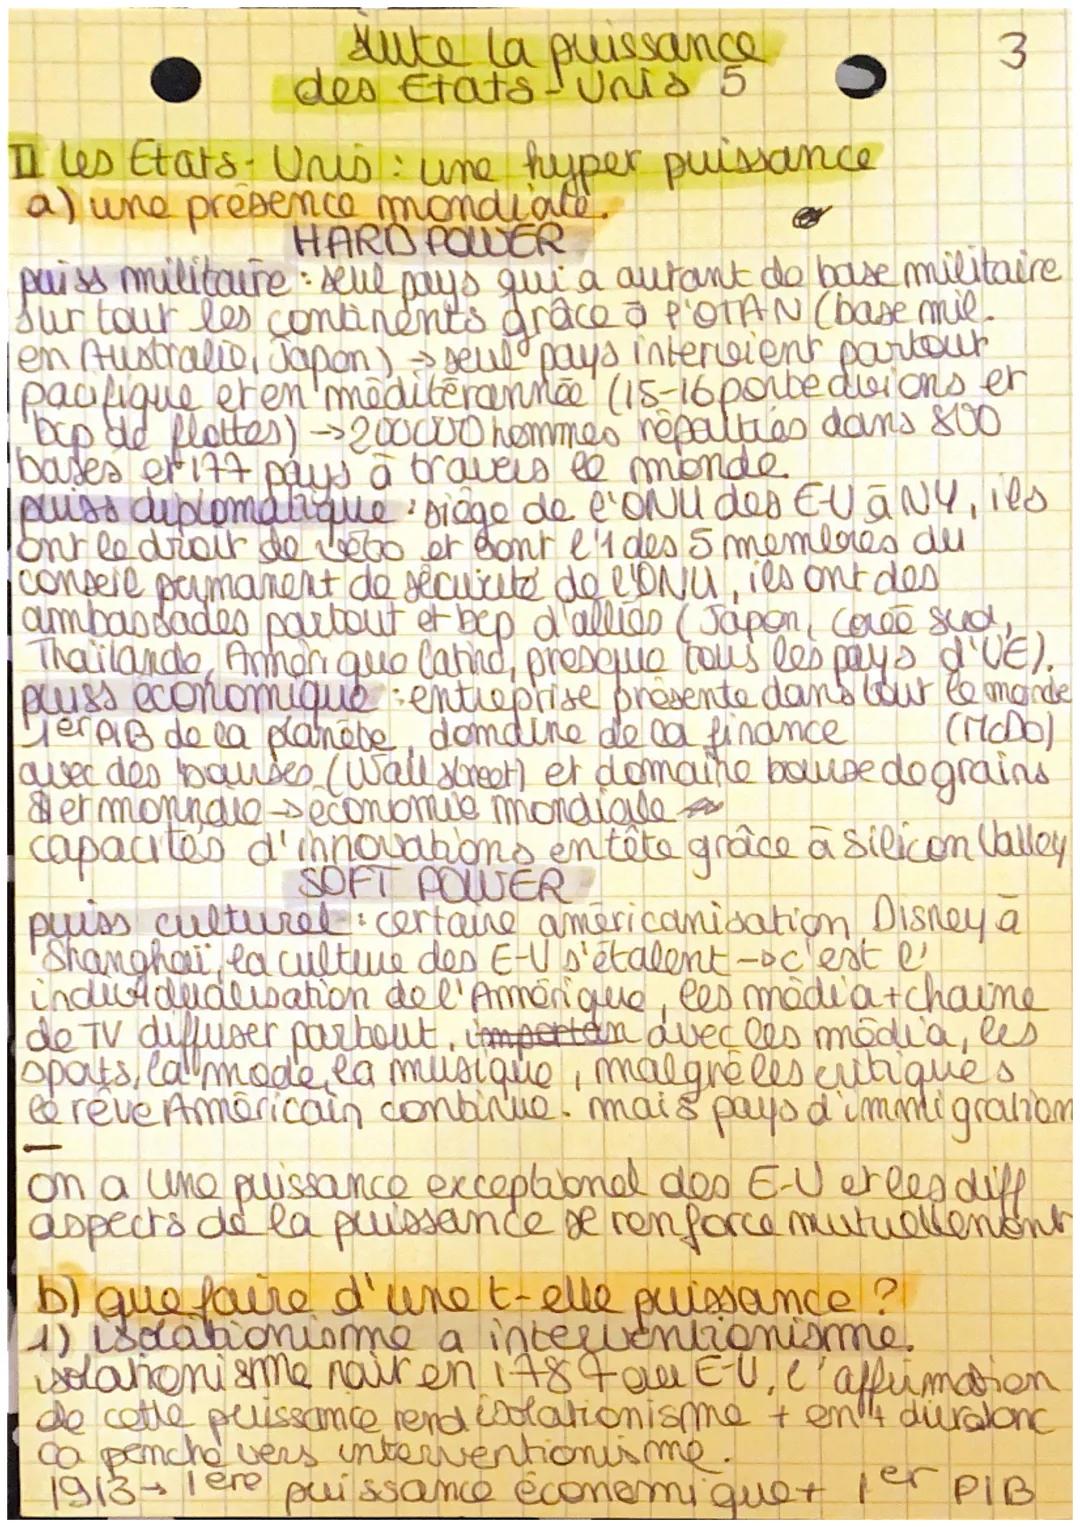 suite la puissance
des Etats-Unis 5
3
II les Etats-Unis : une hyper puissance
a) une présence mondiale.
HARD POWER
puiss militaire : seul pays qui a autant de base militaire
sur tout les continents grâce à l'OTAN (base mil.
en Australie, Japon) → seul pays intervient partout
pacifique et en méditérannée (15-16 porte avions et
bcp de flottes) → 200000 hommes répartiés dans 800
bases et 177 pays à travers le monde.
puiss diplomatique : siège de l'ONU des EU à NY, ils
ont le droit de véto et sont l'1 des 5 membres du
conseil permanent de sécurité de l'ONU, ils ont des
ambassades partout et bcp d'alliés (Japon, Corée sud,
Thaïlande, Amérique latine, presque tous les pays d'UE).
puiss économique : entreprise présente dans tout le monde
1er PIB de la planète, domaine de la finance (McDo)
avec des bourses (Wall street) et domaine bourse de grains
1er monnaie → économie mondiale
capacités d'innovations en tête grâce à Silicon Valley
SOFT POWER
puiss culturel : certaine américanisation Disney à
Shanghaï, la culture des E-U s'étalent → c'est l'
individualisation de l'Amérique, les média + chaine
de TV diffuser partout, avec les média, les
sports, la mode, la musique, malgré les critiques
le rêve Américain continue. mais pays d'immigration
on a une puissance exceptionel des E-U et les diff
aspects de la puissance se renforce mutuellement
b) que faire d'une t-elle puissance ?
1) isolationisme a interventionisme.
isolationisme nait en 1787 au E-U, l'affirmation
de cette puissance rend isolationisme + en + dur donc
ça penche vers interventionisme.
1913 → 1ère puissance économique + 1er PIB